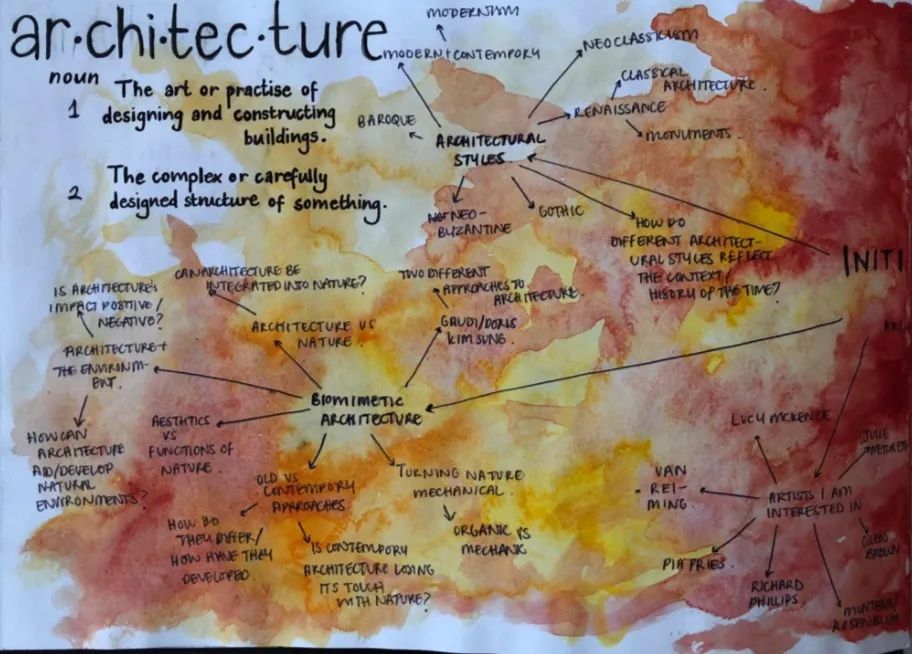 ar·chi·tec·ture
noun
1 The art or practise of
designing and constructing
buildings.
2 The complex or carefully
designed structure of something.
MODERNISM
MODERN + CONTEMPORY
NEOCLASSICISM
CLASSICAL
ARCHITECTURE.
RENAISSANCE
MONUMENTS.
BAROQUE
ARCHITECTURAL
STYLES
NEO-
BYZANTINE
GOTHIC
HOW DO
DIFFERENT ARCHITECT-
URAL STYLES REFLECT
THE CONTEXT/
HISTORY OF THE TIME?
INITI
ARCH
CAN ARCHITECTURE BE
INTEGRATED INTO NATURE?
IS ARCHITECTURE'S
IMPACT POSITIVE/
NEGATIVE?
ARCHITECTURE VS
NATURE.
TWO DIFFERENT
APPROACHES TO
ARCHITECTURE.
GAUDI/DORIS
KIM SUNG.
ARCHITECTURE +
THE ENVIRONM-
ENT.
BIOMIMETIC
ARCHITECTURE
AESTHTICS
VS
FUNCTIONS OF
NATURE.
HOW CAN
ARCHITECTURE
AID/DEVELOP
NATURAL
ENVIRONMENTS?
OLD VS
CONTEMPORY
APPROACHES.
HOW DO
THEY DIFFER/
HOW HAVE THEY
DEVELOPED.
IS CONTEMPORY
ARCHITECTURE LOSING
ITS TOUCH
WITH NATURE?
TURNING NATURE
MECHANICAL.
ORGANIC VS
MECHANIC
ARTISTS I AM
INTERESTED IN
LUCY MCKENZIE
JULIE
VAN
REI-
MING.
PIA FRIES.
RICHARD
PHILLIPS
GLENN
BROWN